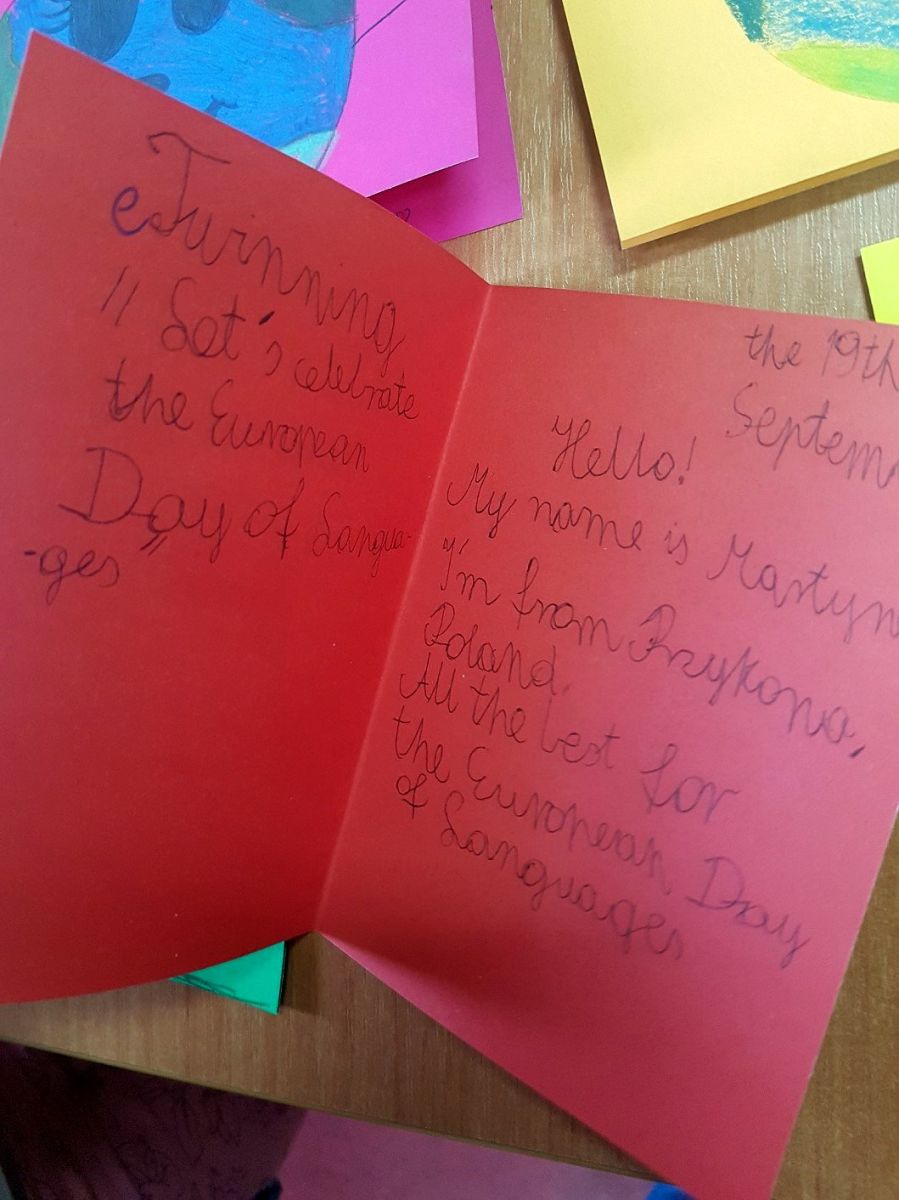 eTwinning
" Let's celebrate
the European
Day of Langua-
-ges"
the 19th
Septem
Hello!
My name is Martyn
I'm from Przykona,
Poland.
All the best for
the European Day
of Languages